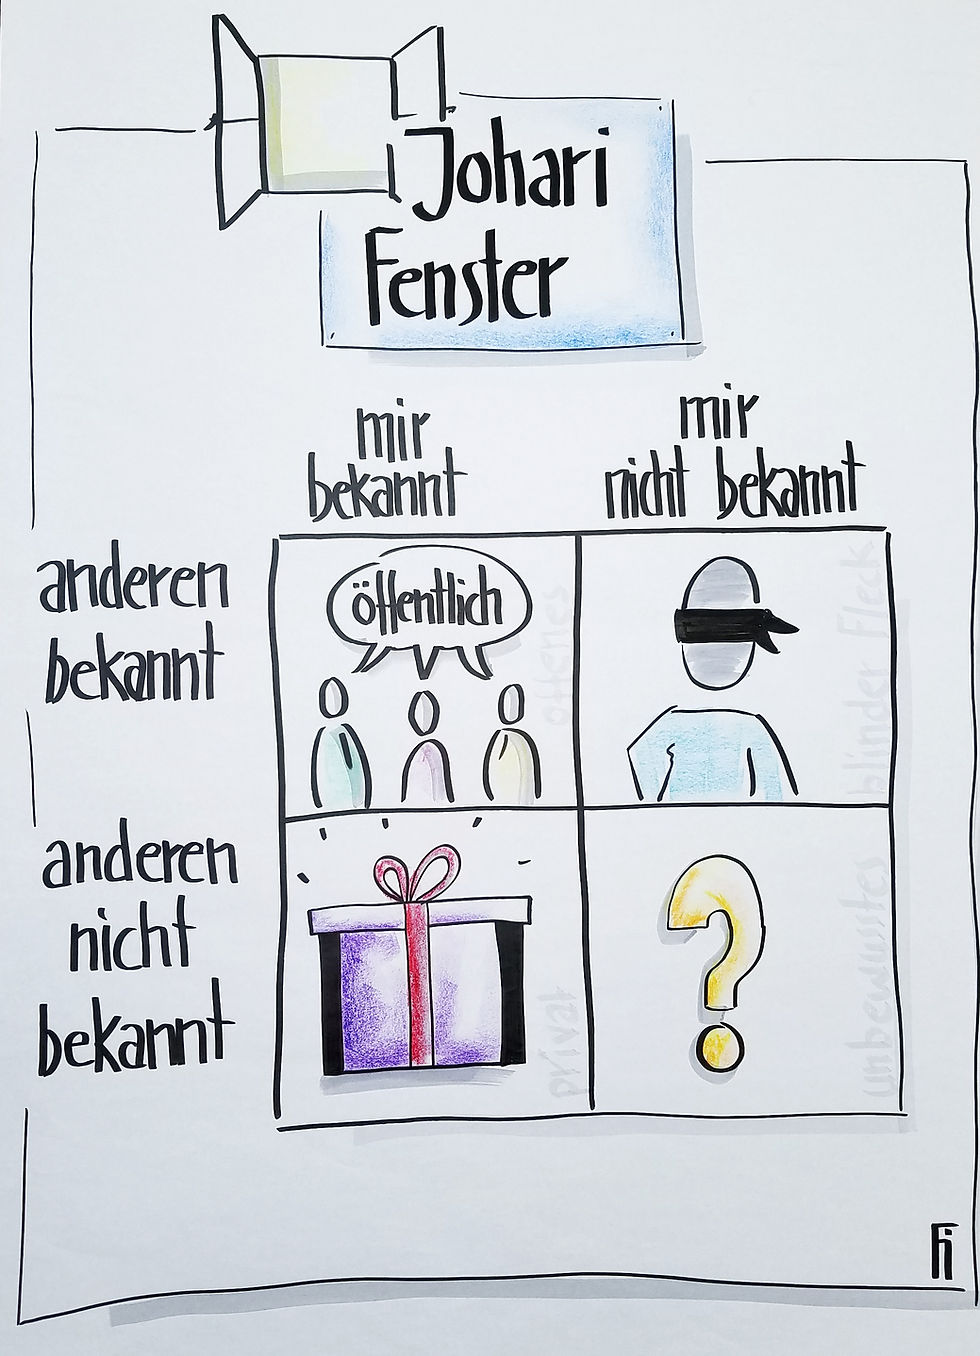 Johari
Fenster
mir
bekannt
mir
nicht bekannt
anderen
bekannt
öffentlich
offenes
blinder Fleck
anderen
nicht
bekannt
privat
unbewusstes